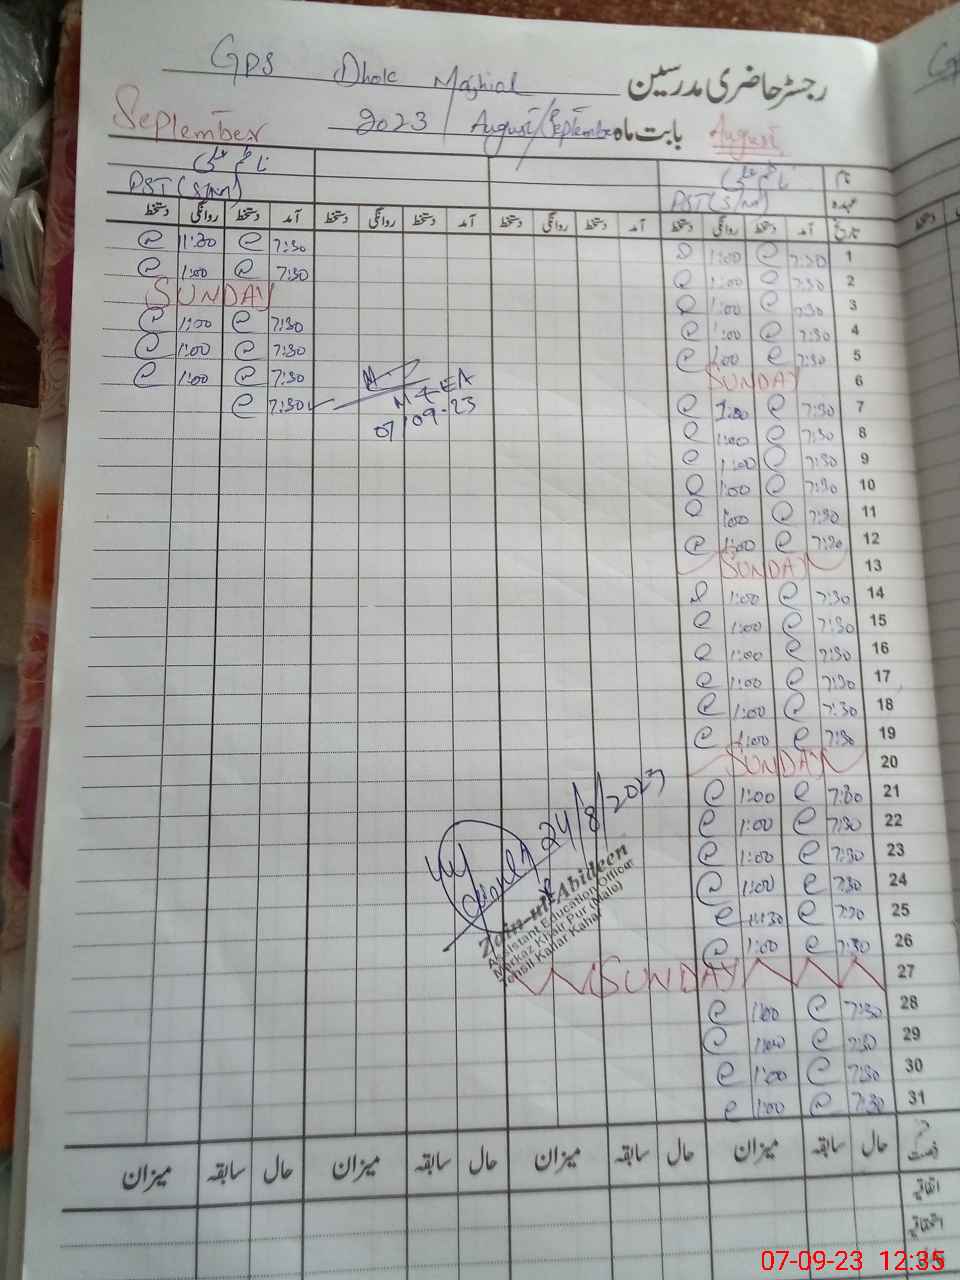 GPS Dhok Maghial رجسٹر حاضری مدرسین
September 2023 / August/September بابت ماہ August
نام
PST( PST( عہدہ
دستخط روانگی دستخط آمد دستخط روانگی دستخط آمد دستخط روانگی دستخط آمد دستخط روانگی دستخط آمد تاریخ
11:30 7:30 1:00 7:30 1
1:00 7:30 1:00 7:30 2
SUNDAY 1:00 7:30 3
1:00 7:30 1:00 7:30 4
1:00 7:30 1:00 7:30 5
1:00 7:30 SUNDAY 6
7:30 1:00 7:30 7
MEA
07/09-23
1:00 7:30 8
1:00 7:30 9
1:00 7:30 10
1:00 7:30 11
1:00 7:30 12
SUNDAY 13
1:00 7:30 14
1:00 7:30 15
1:00 7:30 16
1:00 7:30 17
1:00 7:30 18
1:00 7:30 19
SUNDAY 20
1:00 7:30 21
1:00 7:30 22
1:00 7:30 23
1:00 7:30 24
11:30 7:30 25
1:00 7:30 26
24/8/2023
Zain-ul-Abideen
Assistant Education Officer
Markaz Khair Pur (Male)
Tehsil Kallar Kahar
SUNDAY 27
1:00 7:30 28
1:00 7:30 29
1:00 7:30 30
1:00 7:30 31
میزان سابقہ حال میزان سابقہ حال میزان سابقہ حال میزان سابقہ حال
اتفاقیہ
07-09-23 12:35